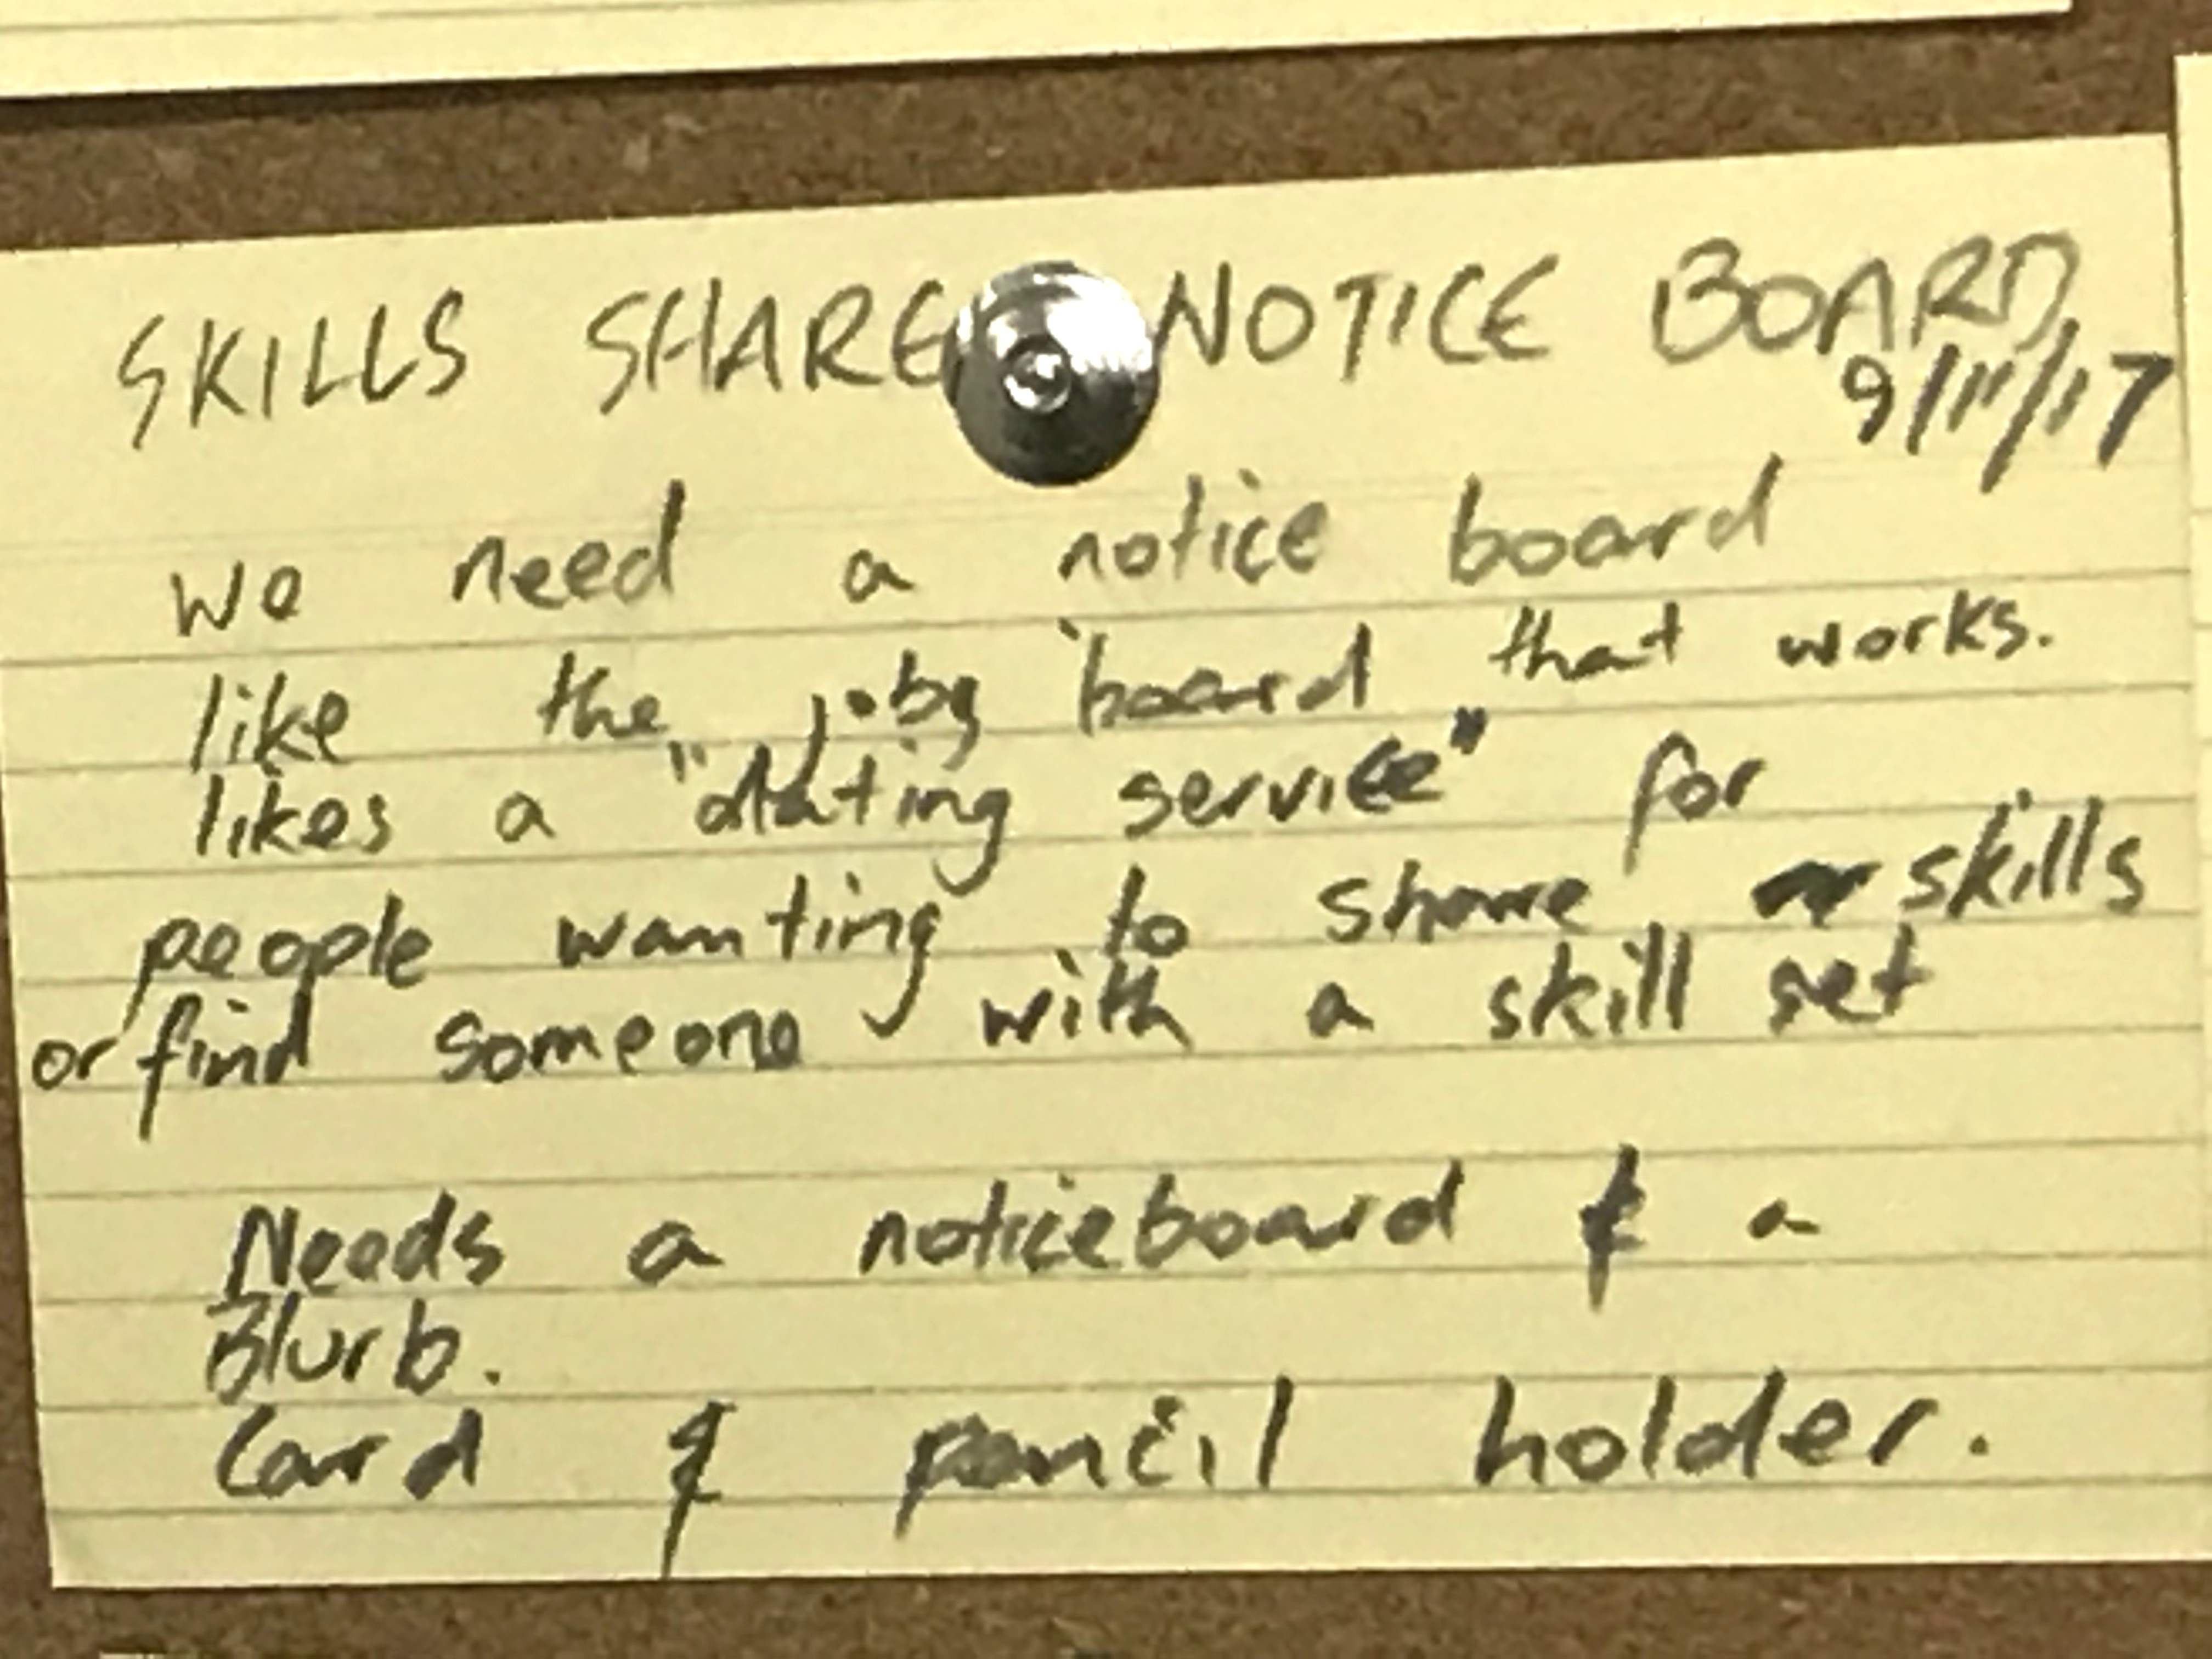 SKILLS SHARE NOTICE BOARD
9/11/17
we need a notice board
like the jobs board that works.
likes a "dating service" for
people wanting to share skills
or find someone with a skill set
Needs a noticeboard & a
Blurb.
Card & pencil holder.